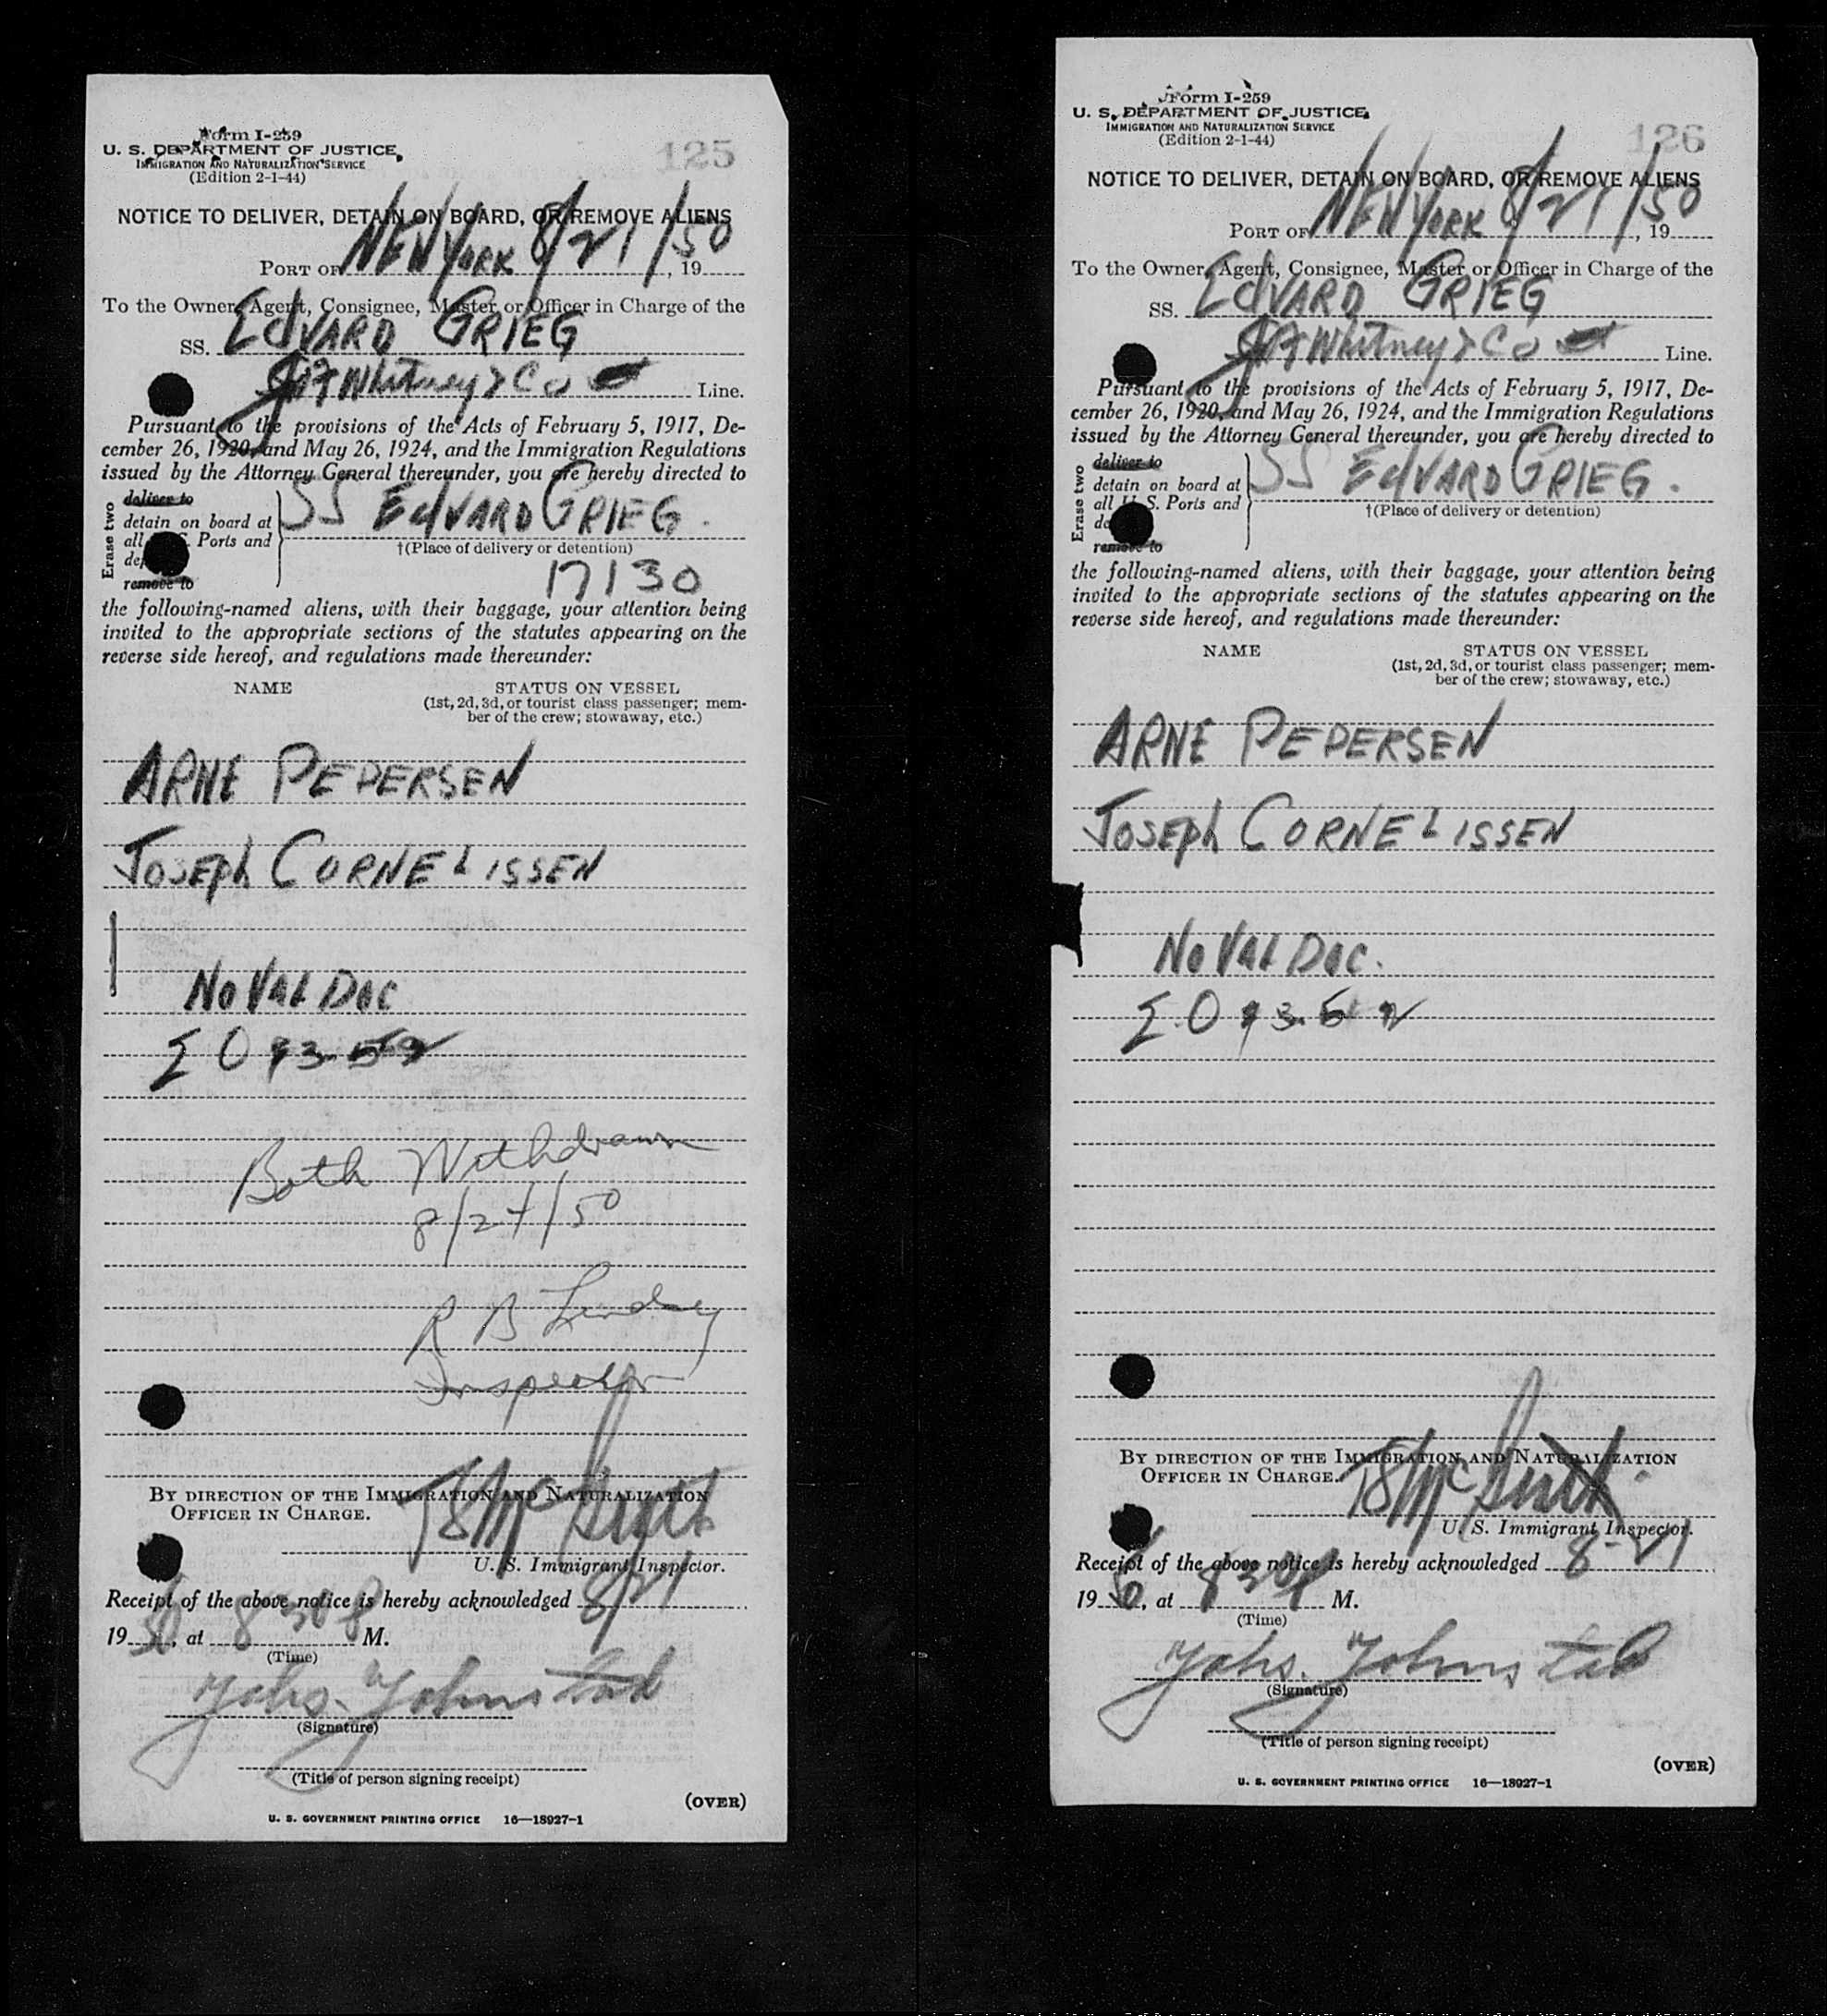 Form I-259
U. S. DEPARTMENT OF JUSTICE
IMMIGRATION AND NATURALIZATION SERVICE
(Edition 2-1-44)
125
NOTICE TO DELIVER, DETAIN ON BOARD, OR REMOVE ALIENS
PORT OF NEW YORK 8/21/50, 19
To the Owner, Agent, Consignee, Master or Officer in Charge of the
SS. EdVARD GRIEG
Whitney & Co Line.
Pursuant to the provisions of the Acts of February 5, 1917, De-
cember 26, 1920, and May 26, 1924, and the Immigration Regulations
issued by the Attorney General thereunder, you are hereby directed to
Erase two
deliver to
detain on board at
all Ports and
remove to
SS EdVARD GRIEG.
†(Place of delivery or detention)
17130
the following-named aliens, with their baggage, your attention being
invited to the appropriate sections of the statutes appearing on the
reverse side hereof, and regulations made thereunder:
NAME STATUS ON VESSEL
(1st, 2d, 3d, or tourist class passenger; mem-
ber of the crew; stowaway, etc.)
ARNE PEDERSEN
JOSEPh CORNELISSEN
No Val Doc
Both Withdrawn
8/24/50
R B Lindsy
Inspector
BY DIRECTION OF THE IMMIGRATION AND NATURALIZATION
OFFICER IN CHARGE.
U. S. Immigrant Inspector.
Receipt of the above notice is hereby acknowledged 8/21
1950, at 830 P M.
(Time)
Johs. Johnstad
(Signature)
(Title of person signing receipt)
(OVER)
U. S. GOVERNMENT PRINTING OFFICE 16—18927-1
Form I-259
U. S. DEPARTMENT OF JUSTICE
IMMIGRATION AND NATURALIZATION SERVICE
(Edition 2-1-44)
126
NOTICE TO DELIVER, DETAIN ON BOARD, OR REMOVE ALIENS
PORT OF NEW YORK 8/21/50, 19
To the Owner, Agent, Consignee, Master or Officer in Charge of the
SS. EdVARD GRIEG
Whitney & Co Line.
Pursuant to the provisions of the Acts of February 5, 1917, De-
cember 26, 1920, and May 26, 1924, and the Immigration Regulations
issued by the Attorney General thereunder, you are hereby directed to
Erase two
deliver to
detain on board at
all U. S. Ports and
remove to
SS EdVARD GRIEG.
†(Place of delivery or detention)
the following-named aliens, with their baggage, your attention being
invited to the appropriate sections of the statutes appearing on the
reverse side hereof, and regulations made thereunder:
NAME STATUS ON VESSEL
(1st, 2d, 3d, or tourist class passenger; mem-
ber of the crew; stowaway, etc.)
ARNE PEDERSEN
JOSEPh CORNELISSEN
No Val Doc.
BY DIRECTION OF THE IMMIGRATION AND NATURALIZATION
OFFICER IN CHARGE.
U. S. Immigrant Inspector.
Receipt of the above notice is hereby acknowledged 8-21
1950, at 830 P M.
(Time)
Johs. Johnstad
(Signature)
(Title of person signing receipt)
(OVER)
U. S. GOVERNMENT PRINTING OFFICE 16—18927-1